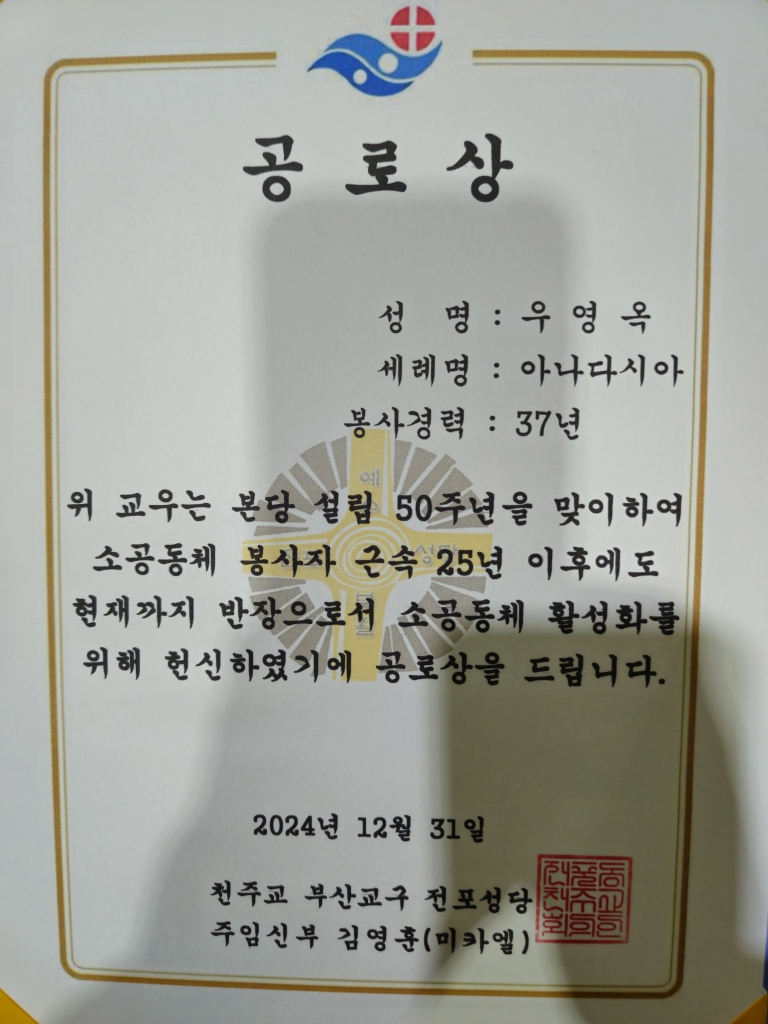 공 로 상
성 명 : 우 영 옥
세례명 : 아나다시아
봉사경력 : 37년
위 교우는 본당 설립 50주년을 맞이하여
소공동체 봉사자 근속 25년 이후에도
현재까지 반장으로서 소공동체 활성화를
위해 헌신하였기에 공로상을 드립니다.
2024년 12월 31일
천주교 부산교구 전포성당
주임신부 김영훈(미카엘)